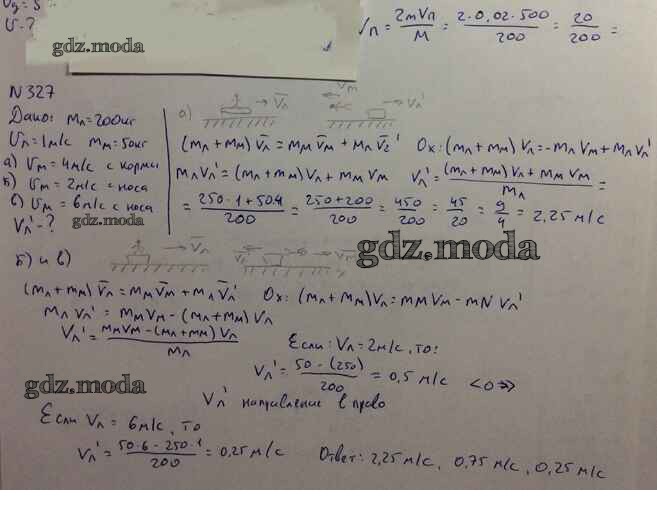 υ-?
Vл = 2mVп / M = 2·0,02·500 / 200 = 20 / 200 =
gdz.moda
N 327
Дано: mл=200кг
Uл=1м/с mм=50кг
а) Vм=4м/с с кормы
б) Vм=2м/с с носа
в) Vм=6м/с с носа
Vл'-?
gdz.moda
а) V̄л Vм V̄л'
(mл+mм)V̄л=mмV̄м+mлV̄2' Ox:(mл+mм)Vл=-mлVм+mлVл'
mлVл'=(mл+mм)Vл+mмVм Vл'=(mл+mм)Vл+mмVм / mл =
= 250·1+50·4 / 200 = 250+200 / 200 = 450 / 200 = 45 / 20 = 9 / 4 = 2,25 м/с
gdz.moda
б) и в) V̄л
(mл+mм)V̄л=mмV̄м+mлV̄л' Ox: (mл+mм)Vл=mмVм-mN Vл'
mлVл'=mмVм-(mл+mм)Vл
Vл'= mмVм-(mл+mм)Vл / mл
Если: Vл=2м/с, то:
Vл'= 50-(250) / 200 = 0,5 м/с <0 =>
gdz.moda
Vл' направление вправо
Если Vл = 6м/с, то
Vл'= 50·6-250·1 / 200 = 0,25 м/с Ответ: 2,25 м/с, 0,75 м/с, 0,25 м/с